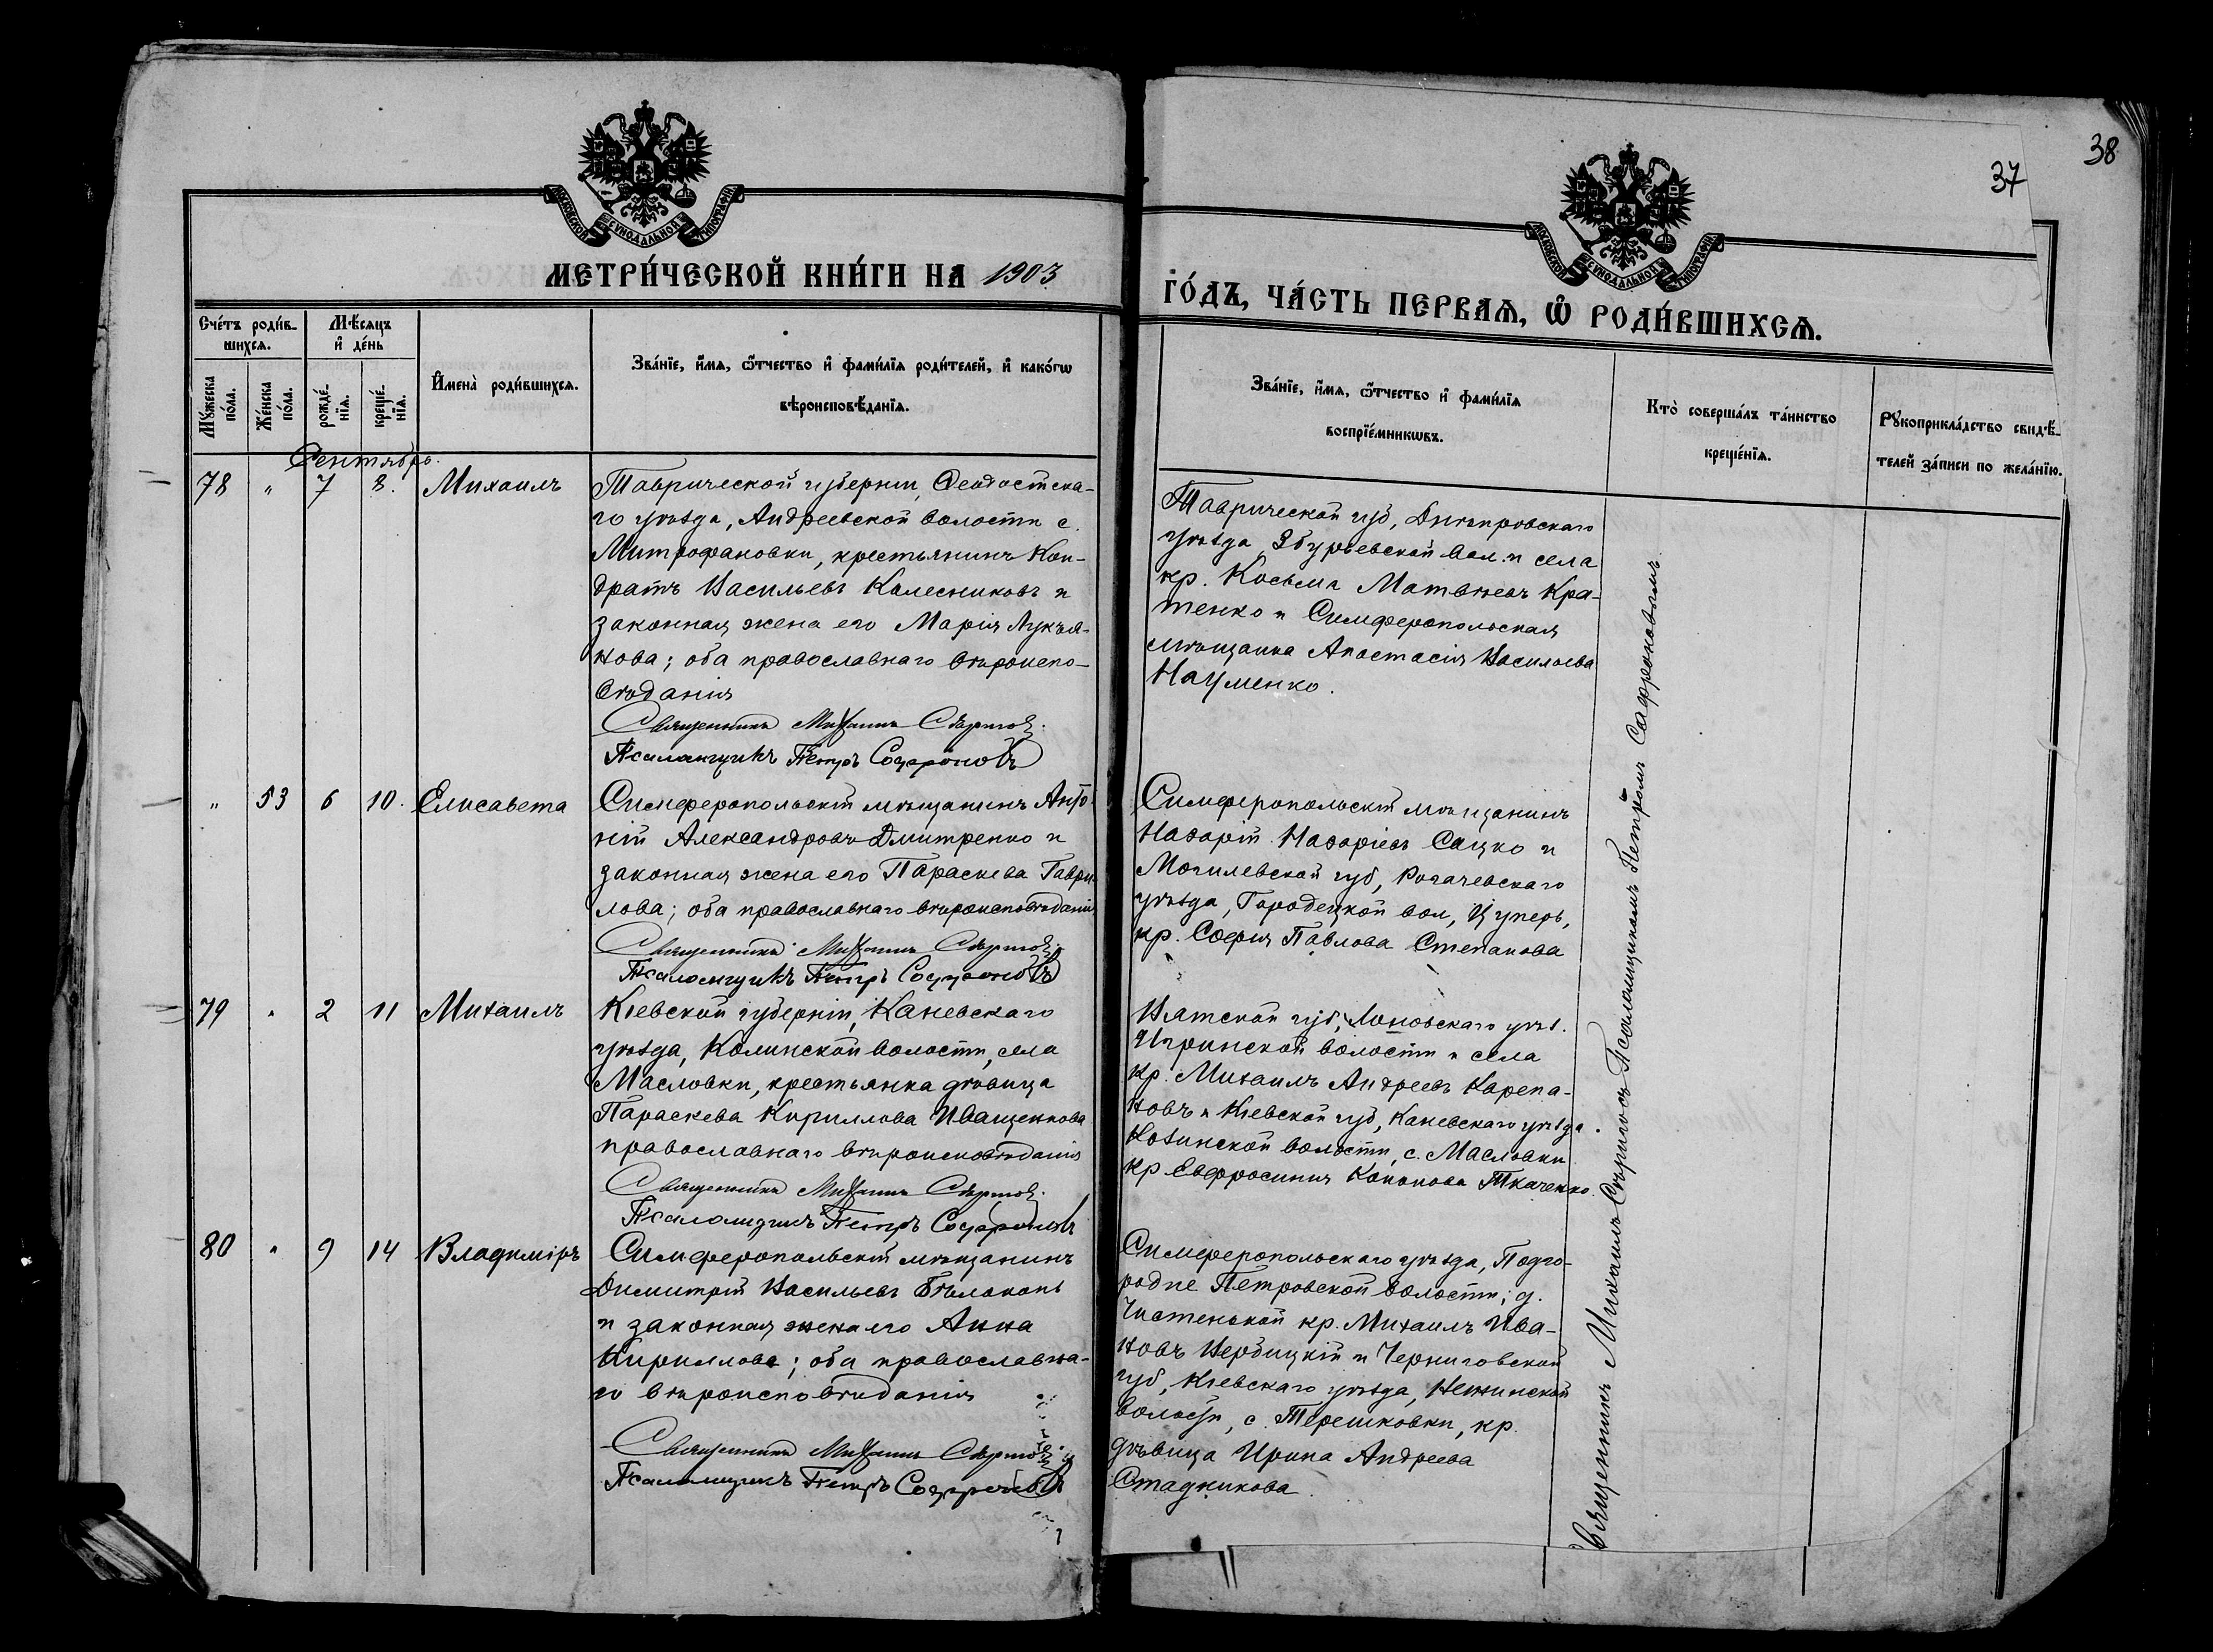 38
37
МОСКОВСКОЙ СУНОДАЛЬНОЙ ТИПОГРАФІИ
МОСКОВСКОЙ СУНОДАЛЬНОЙ ТИПОГРАФІИ
МЕТРИ́ЧЕСКОЙ КНИ́ГИ НА 1903
ГО́ДЪ, ЧА́СТЬ ПЕРВАЯ, Ѡ РОДИ́ВШИХСЯ.
Сче́тъ роди́в-
шихся.
Мѣ́сяцъ
и҆ де́нь
Мꙋ́жеска
по́ла.
Же́нска
по́ла.
рожде́-
нїя.
креще́-
нїя.
И҆мена̀ роди́вшихся.
Зва́нїе, и҆́мя, ѻ҆́тчество и҆ фами́лїя роди́телей, и҆ како́гѡ
вѣроисповѣ́данїя.
Зва́нїе, и҆́мя, ѻ҆́тчество и҆ фами́лїя
воспрїе́мникѡвъ.
Кто̀ соверша́лъ та́инство
креще́нїя.
Рꙋкоприкла́дство свидѣ́-
телей за́писи по жела́нїю.
Сентябрь.
78 " 7 8. Михаилъ
Таврической губерніи, Ѳеодосійска-
го уѣзда, Андреевской волости с.
Митрофановки, крестьянинъ Кон-
дратъ Васильевъ Колесниковъ и
законная жена его Марія Лукья-
нова; оба православнаго вѣроиспо-
вѣданія
Священникъ Михаилъ
Псаломщикъ Петръ Софроновъ
Таврической губ, Днѣпровскаго
уѣзда Збурьевской вол. и села
кр. Косьма Матвѣевъ Кра-
тенко и Симферопольская
мѣщанка Анастасія Васильева
Науменко.
" 53 6 10. Елисавета
Симферопольскій мѣщанинъ Анто-
ній Александровъ Дмитренко и
законная жена его Параскева Гаври-
лова; оба православнаго вѣроисповѣданія
Священникъ Михаилъ
Псаломщикъ Петръ Софроновъ
Симферопольскій мѣщанинъ
Назарій Назаріевъ Сацко и
Могилевской губ, Рогачевскаго
уѣзда, Городецкой вол, Цуперъ,
кр. Софія Павлова Степанова
79 " 2 11 Михаилъ
Кіевской губерніи, Каневскаго
уѣзда, Козинской волости, села
Масловки, крестьянка дѣвица
Параскева Кириллова Иващенкова
православнаго вѣроисповѣданія
Священникъ Михаилъ
Псаломщикъ Петръ Софроновъ
Вятской губ, уѣз.
Игринской волости и села
кр. Михаилъ Андреевъ Карепа-
новъ и Кіевской губ, Каневскаго уѣзда
Козинской волости, с. Масловки
кр Евфросинія Кононова Ткаченко.
80 " 9 14 Владиміръ
Симферопольскій мѣщанинъ
Димитрій Васильевъ Бѣлоконь
и законная жена его Анна
Кириллова; оба православна-
го вѣроисповѣданія
Священникъ Михаилъ
Псаломщикъ Петръ Софроновъ
Симферопольскаго уѣзда, Подго-
родне Петровской волости, д.
Чистенькой кр. Михаилъ Ива-
новъ Вербицкій и Черниговской
губ, Кіевскаго уѣзда, Нежинской
волости, с. Терешковки, кр.
дѣвица Ирина Андреева
Стадникова.
Священникъ Михаилъ съ Псаломщикомъ Петромъ Сафроновымъ